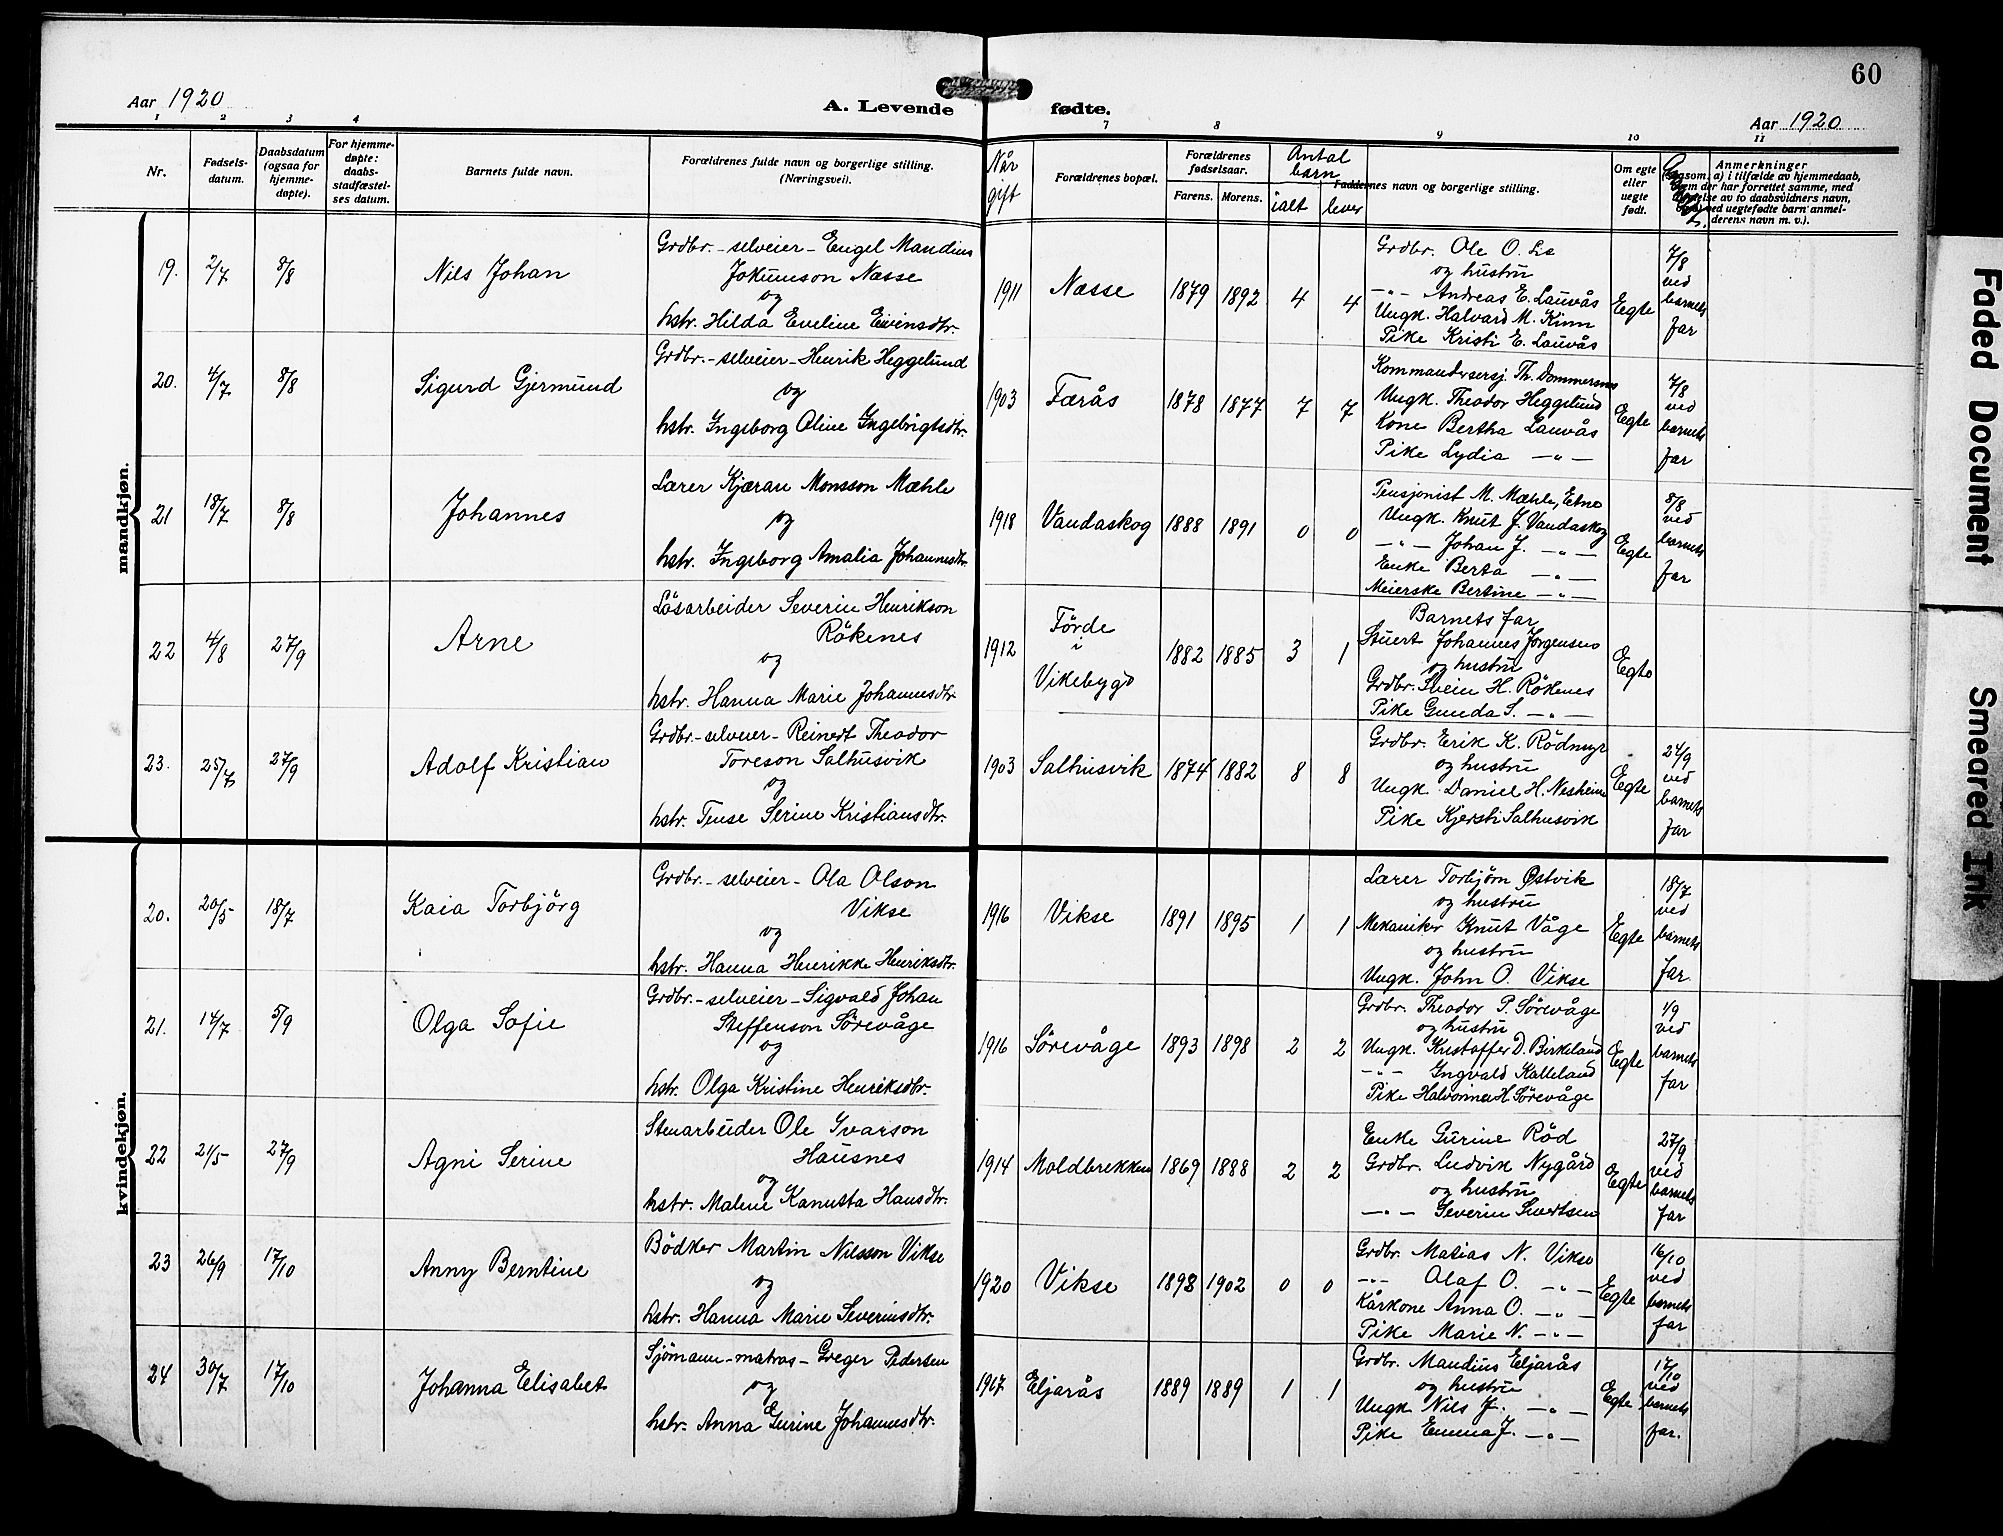 60
Aar 1920
A. Levende fødte.
Aar 1920
1 2 3 4 7 8 9 10 11
Nr.
Fødsels-
datum.
Daabsdatum
(ogsaa for
hjemme-
døpte).
For hjemme-
døpte:
daabs-
stadfæstel-
ses datum.
Barnets fulde navn.
Forældrenes fulde navn og borgerlige stilling.
(Næringsvei).
Når
gift
Forældrenes bopæl.
Forældrenes
fødselsaar.
Farens. Morens.
Antal
barn
ialt lever
Faddernes navn og borgerlige stilling.
Om egte
eller
uegte
født.
Anmerkninger
(saasom: a) i tilfælde av hjemmedaab,
hvem der har forrettet samme, med
av to daabsvidners navn,
ved uegtefødte barn anmel-
derens navn m. v.).
mandkjøn.
19. 2/7 8/8 Nils Johan
Grdbr. - selveier - Engel Mandius
Jokumson Næsse
og
hstr. Hilda Eveline Eivensdtr.
1911 Næsse 1879 1892 4 4
Grdbr. Ole O. Lie
og hustru
-"- Andreas E. Lauvås
Ungk. Halvard M. Kinn
Pike Kristi E. Lauvås
Egte
7/8
ved
barnets
far
20. 4/7 8/8 Sigurd Gjermund
Grdbr. - selveier - Henrik Heggelund
og
hstr. Ingeborg Oline Ingebrigtsdtr.
1903 Færås 1878 1877 7 7
Kommandersersj. Th. Dommersnes
Ungk. Theodor Heggelund
Kone Bertha Lauvås
Pike Lydia -"-
Egte
7/8
ved
barnets
far
21 18/7 8/8 Johannes
Lærer Kjæran Monsson Mæhle
og
hstr. Ingeborg Amalia Johannesdtr.
1918 Vandaskog 1888 1891 0 0
Pensjonist M. Mæhle, Etne
Ungk. Knut J. Vandaskog
-"- Johan J. -"-
Enke Berta -"-
Meierske Bertine -"-
Egte
8/8
ved
barnets
far
22 4/8 27/9 Arne
Løsarbeider Severin Henrikson
Røkenes
og
hstr. Hanna Marie Johannesdtr.
1912 Førde
i
Vikebygd
1882 1885 3 1
Barnets far
Stuert Johannes Jørgensens
og hustru
Grdbr. Svein H. Røkenes
Pike Gunda S. -"-
Egte
23. 25/7 27/9 Adolf Kristian
Grdbr. - selveier - Reinert Theodor
Toreson Salhusvik
og
hstr. Tense Serine Kristiansdtr.
1903 Salhusvik 1874 1882 8 8
Grdbr. Erik K. Rødmyr
og hustru
Ungk. Daniel H. Nesheim
Pike Kjersti Salhusvik
Egte
24/9
ved
barnets
far
kvindekjøn.
20. 20/5 18/7 Kaia Torbjörg
Grdbr. - selveier - Ola Olson
Vikse
og
hstr. Hanna Henrikke Henriksdtr.
1916 Vikse 1891 1895 1 1
Lærer Torbjørn Østvik
og hustru
Mekaniker Knut Våge
og hustru
Ungk. John O. Vikse
Egte
18/7
ved
barnets
far
21. 14/7 5/9 Olga Sofie
Grdbr. - selveier - Sigvald Johan
Steffenson Sörevåge
og
hstr. Olga Kristine Henriksdtr.
1916 Sörevåge 1893 1898 2 2
Grdbr. Theodor P. Sörevåge
og hustru
Ungk. Kristoffer D. Birkeland
-"- Ingvald Kalleland
Pike Halvorine H. Sörevåge
Egte
1/9
ved
barnets
far
22 21/5 27/9 Agni Serine
Stenarbeider Ole Ivarson
Hausnes
og
hstr. Malene Kanutta Hansdtr.
1914 Moldbrekken 1869 1888 2 2
Enke Gurine Rød
Grdbr. Ludvik Nygård
og hustru
-"- Severin Sivertsen
Egte
27/9
ved
barnets
far
23 26/9 17/10 Anny Berntine
Bödker Martin Nilsson Vikse
og
hstr. Hanna Marie Severinsdtr.
1920 Vikse 1898 1902 0 0
Grdbr. Matias N. Vikse
-"- Olaf O. -"-
Kårkone Anna O. -"-
Pike Marie N. -"-
Egte
16/10
ved
barnets
far
24 30/7 17/10 Johanna Elisabet
Sjømann - matros - Greger Pedersen
og
hstr. Anna Gurine Johannesdtr.
1917 Eljarås 1889 1889 1 1
Grdbr. Mandius Eljarås
og hustru
Ungk Nils J. -"-
Pike Emma J. -"-
Egte
17/10
ved
barnets
far.
Faded Document
Smeared Ink